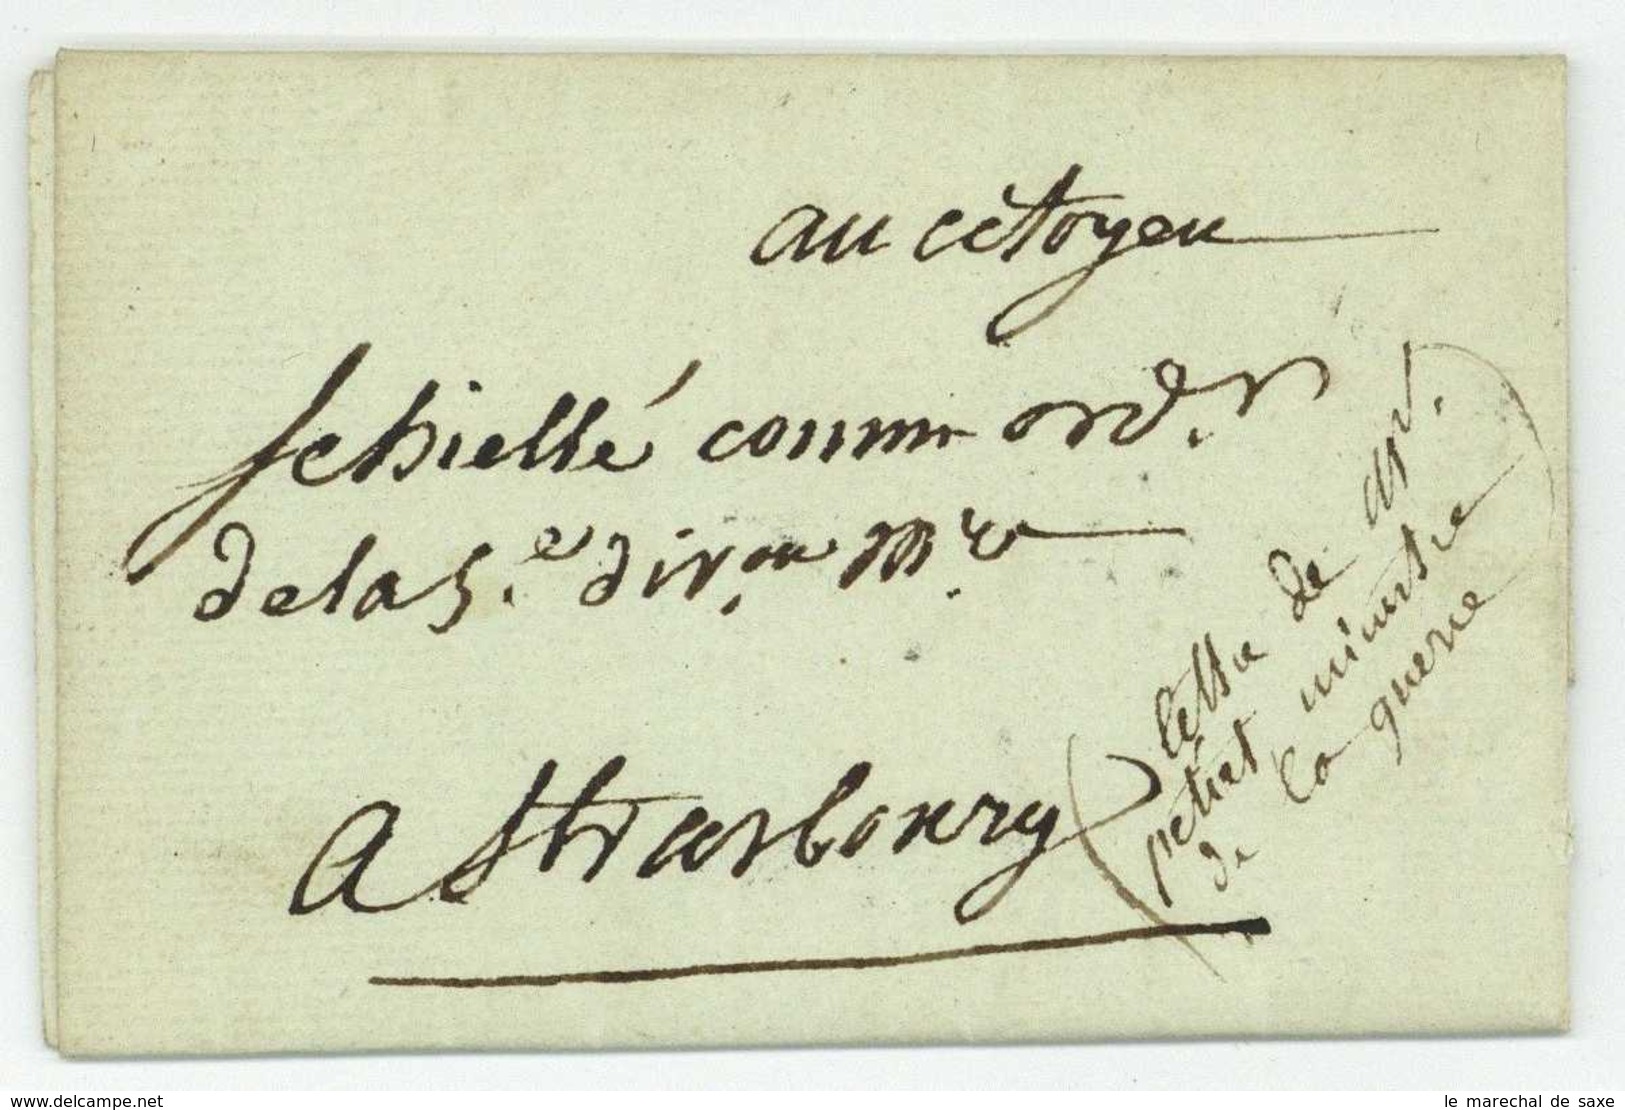 au citoyen
Schiellé commre ordr.
de la 5.e div.on M.re
a Strasbourg
lettre de
petiet ministre
de la guerre
www.delcampe.net
le marechal de saxe